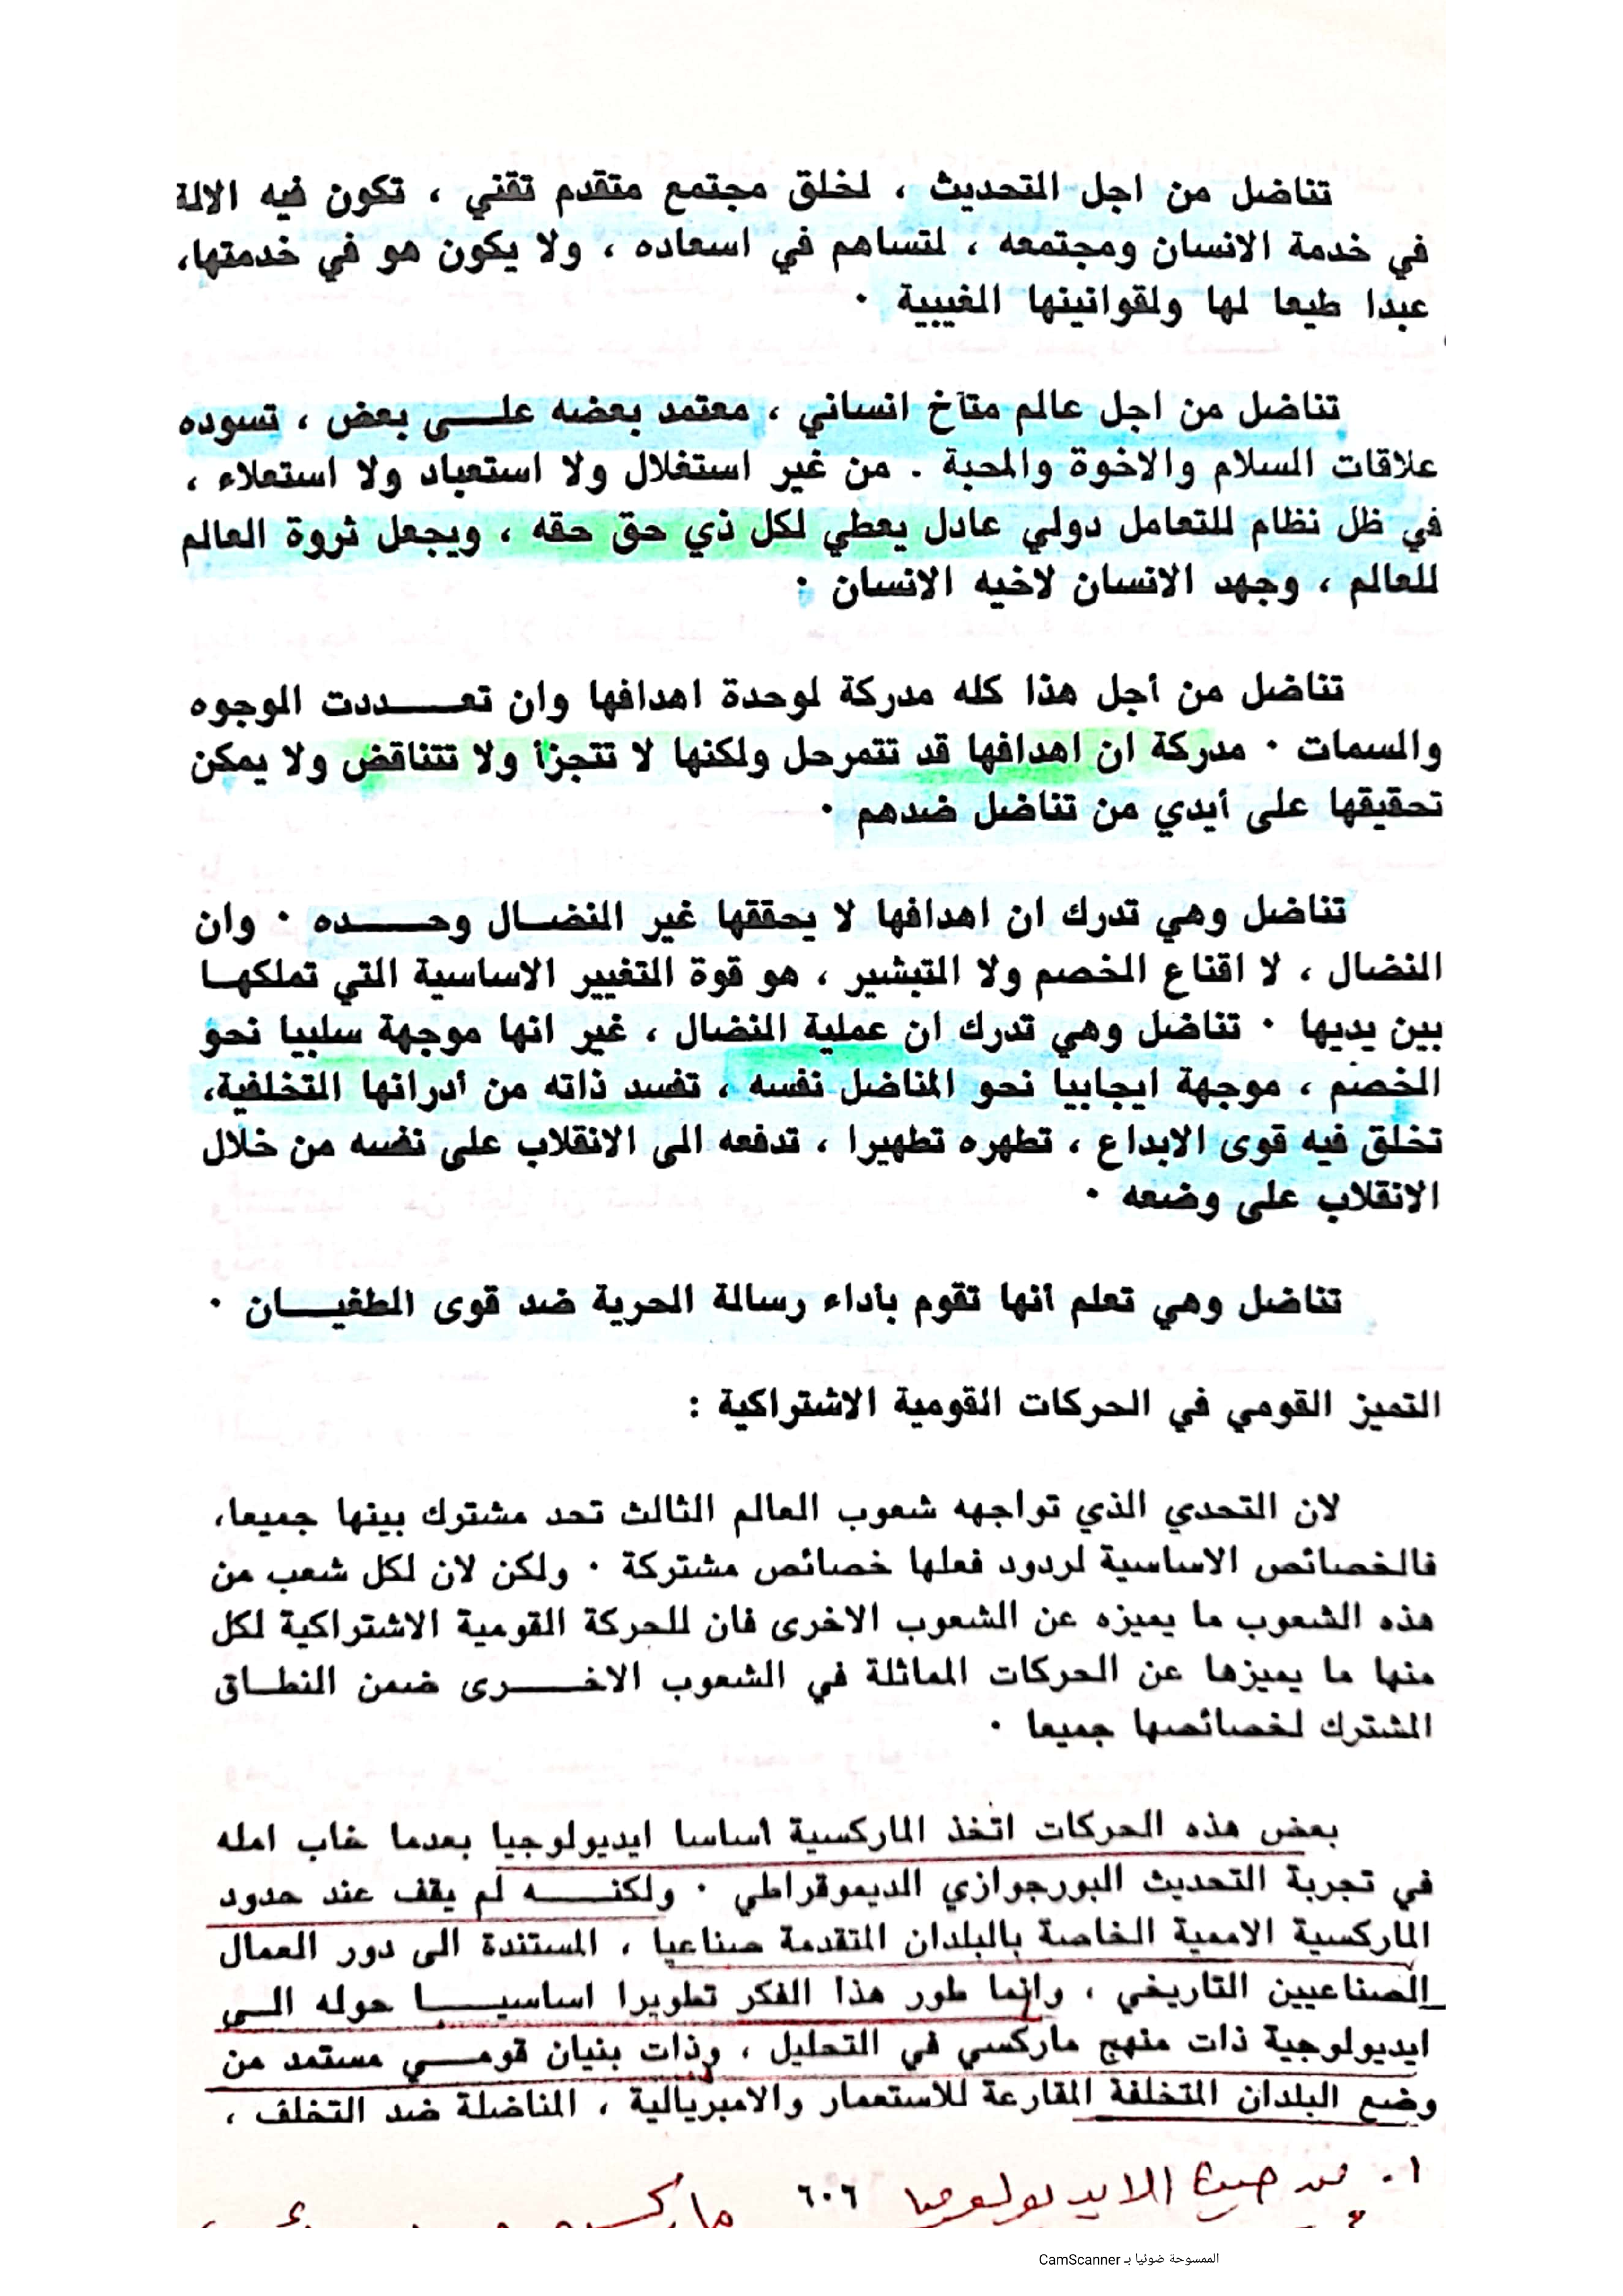 تناضل من اجل التحديث ، لخلق مجتمع متقدم تقني ، تكون فيه الالة
في خدمة الانسان ومجتمعه ، لتساهم في اسعاده ، ولا يكون هو في خدمتها،
عبدا طيعا لها ولقوانينها الغيبية ٠
تناضل من اجل عالم متآخ انساني ، معتمد بعضه علــى بعض ، تسوده
علاقات السلام والاخوة والمحبة . من غير استغلال ولا استعباد ولا استعلاء ،
في ظل نظام للتعامل دولي عادل يعطي لكل ذي حق حقه ، ويجعل ثروة العالم
للعالم ، وجهد الانسان لاخيه الانسان :
تناضل من أجل هذا كله مدركة لوحدة اهدافها وان تعــــددت الوجوه
والسمات ٠ مدركة ان اهدافها قد تتمرحل ولكنها لا تتجزأ ولا تتناقض ولا يمكن
تحقيقها على أيدي من تناضل ضدهم ٠
تناضل وهي تدرك ان اهدافها لا يحققها غير النضــال وحــــده ٠ وان
النضال ، لا اقناع الخصم ولا التبشير ، هو قوة التغيير الاساسية التي تملكهـا
بين يديها ٠ تناضل وهي تدرك ان عملية النضال ، غير انها موجهة سلبيا نحو
الخصم ، موجهة ايجابيا نحو المناضل نفسه ، تفسد ذاته من أدرانها التخلفية،
تخلق فيه قوى الابداع ، تطهره تطهيرا ، تدفعه الى الانقلاب على نفسه من خلال
الانقلاب على وضعه ٠
تناضل وهي تعلم أنها تقوم بأداء رسالة الحرية ضد قوى الطغيـــان ٠
التميز القومي في الحركات القومية الاشتراكية :
لان التحدي الذي تواجهه شعوب العالم الثالث تحد مشترك بينها جميعا،
فالخصائص الاساسية لردود فعلها خصائص مشتركة ٠ ولكن لان لكل شعب من
هذه الشعوب ما يميزه عن الشعوب الاخرى فان للحركة القومية الاشتراكية لكل
منها ما يميزها عن الحركات المماثلة في الشعوب الاخــــرى ضمن النطـاق
المشترك لخصائصها جميعا ٠
بعض هذه الحركات اتخذ الماركسية أساسا ايديولوجيا بعدما خاب امله
في تجربة التحديث البورجوازي الديموقراطي ٠ ولكنــــه لم يقف عند حدود
الماركسية الاممية الخاصة بالبلدان المتقدمة صناعيا ، المستندة الى دور العمال
الصناعيين التاريخي ، وانما طور هذا الفكر تطويرا اساسيــــا حوله الــى
ايديولوجية ذات منهج ماركسي في التحليل ، وذات بنيان قومــــي مستمد من
وضع البلدان المتخلفة المقارعة للاستعمار والامبريالية ، المناضلة ضد التخلف ،
٦٠٦
١. الايديولوجيا
الممسوحة ضوئيا بـ CamScanner